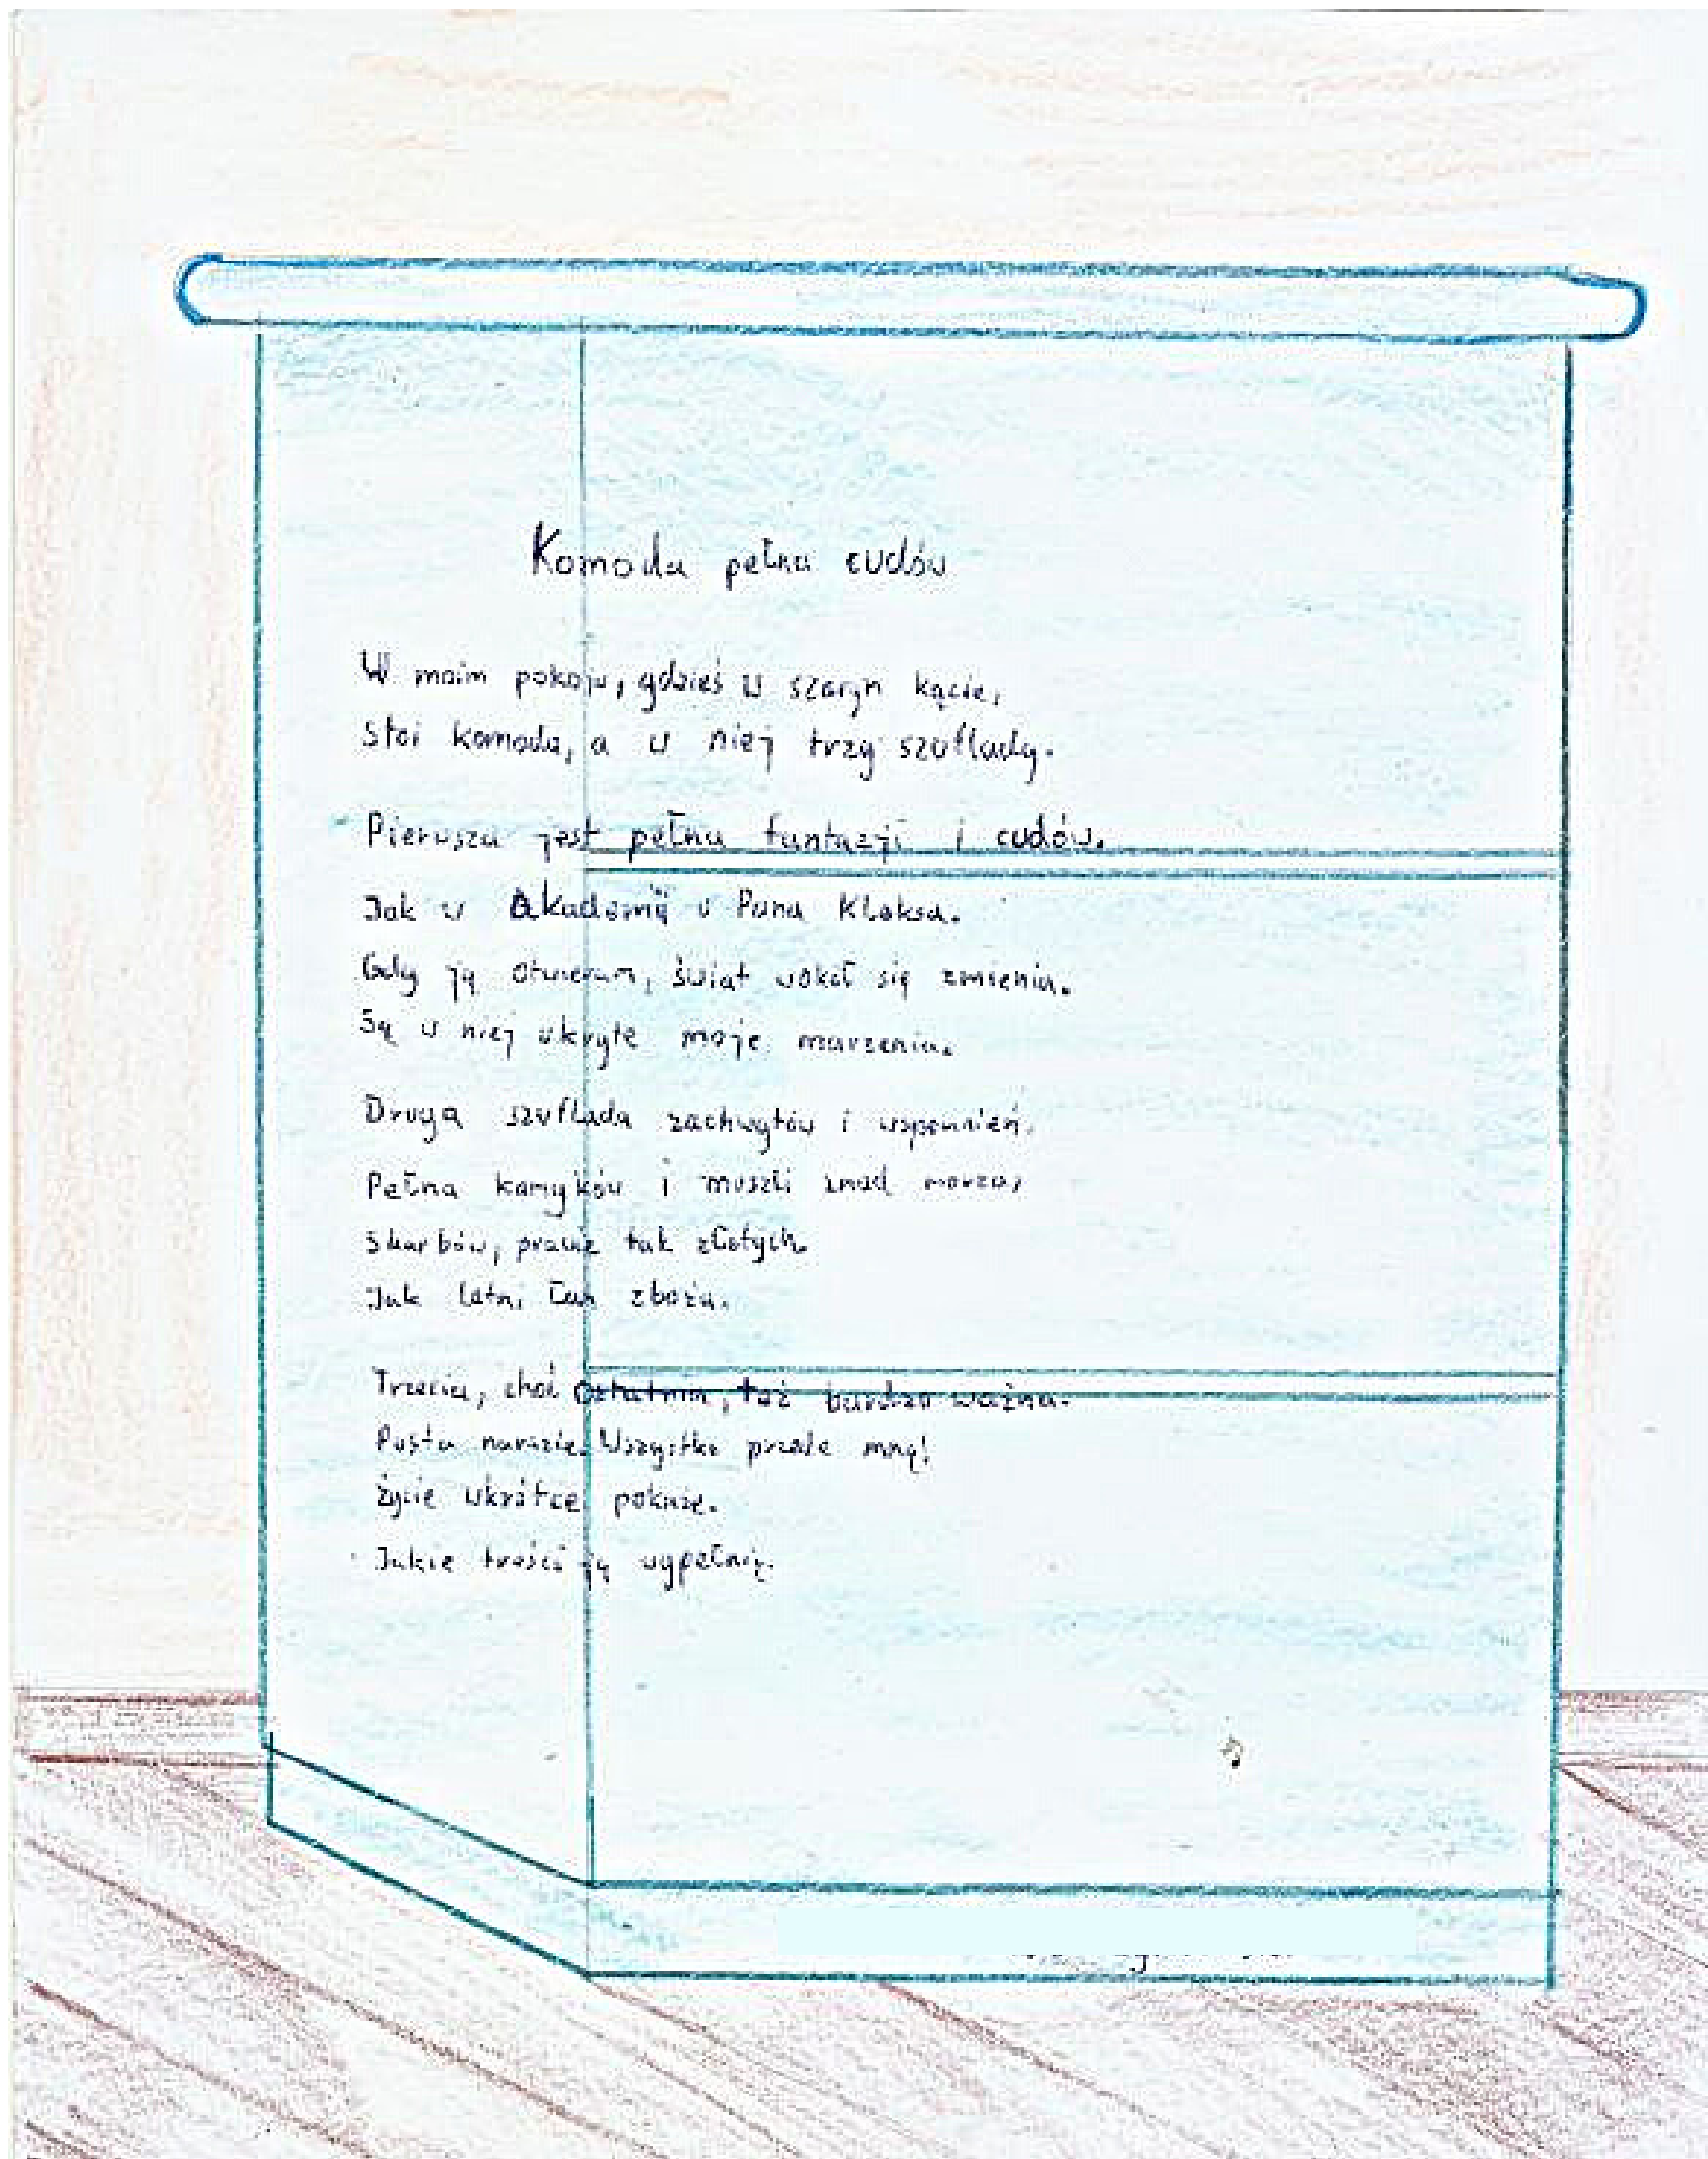 Komoda pełna cudów
W moim pokoju, gdzieś w szarym kącie,
stoi komoda, a w niej trzy szuflady.
Pierwsza jest pełna fantazji i cudów.
Jak w Akademii u Pana Kleksa.
Gdy ją otwieram, świat wokół się zmienia.
Są w niej ukryte moje marzenia.
Druga szuflada zachwytów i wspomnień.
Pełna kamyków i muszli znad morza,
skarbów, prawie tak złotych.
Jak letni łan zboża.
Trzecia, choć ostatnia, też bardzo ważna.
Pusta narazie. Wszystko przede mną!
Życie wkrótce pokaże.
Jakie treści ją wypełnią.